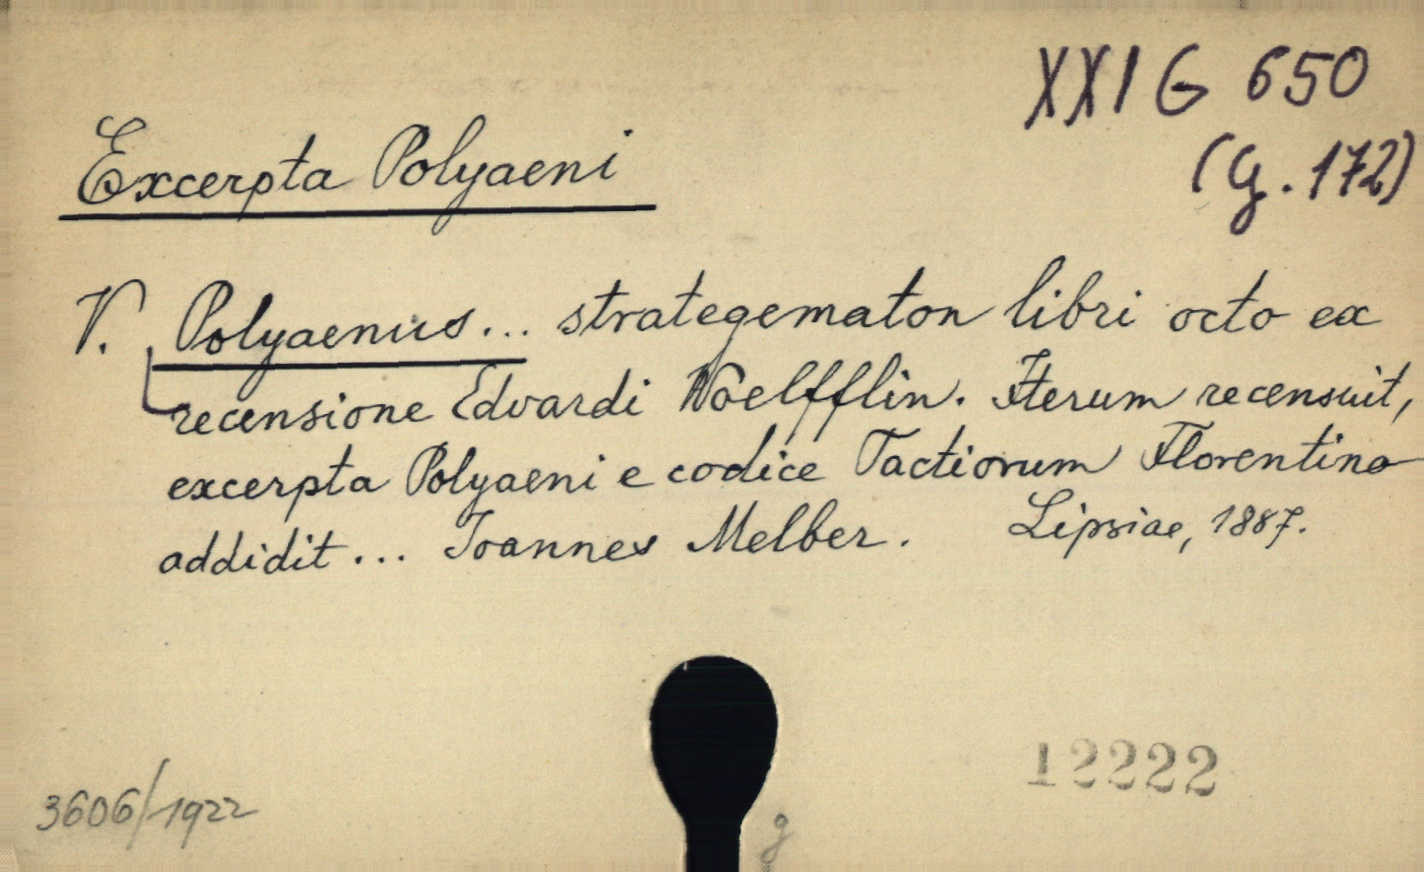 XXI G 650
(G. 172)
Excerpta Polyaeni
V. Polyaenus... strategematon libri octo ex
recensione Edvardi Woelfflin. Iterum recensuit,
excerpta Polyaeni e codice Tacticorum Florentino
addidit... Ioannes Melber. Lipsiae, 1887.
12222
3606/1922
g